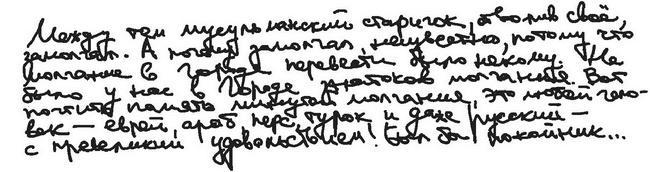 Между тем мусульманский старичок, отволив своё,
замолчал. А почему замолчал, неизвестно, потому что
молчание в Городе перевести было некому. Не
было у нас в Городе знатоков молчания. Вот
почтить память минутой молчания, это любой чело-
век — еврей, араб, перс, турок, и даже русский —
с превеликим удовольствием! Был бы покойник...